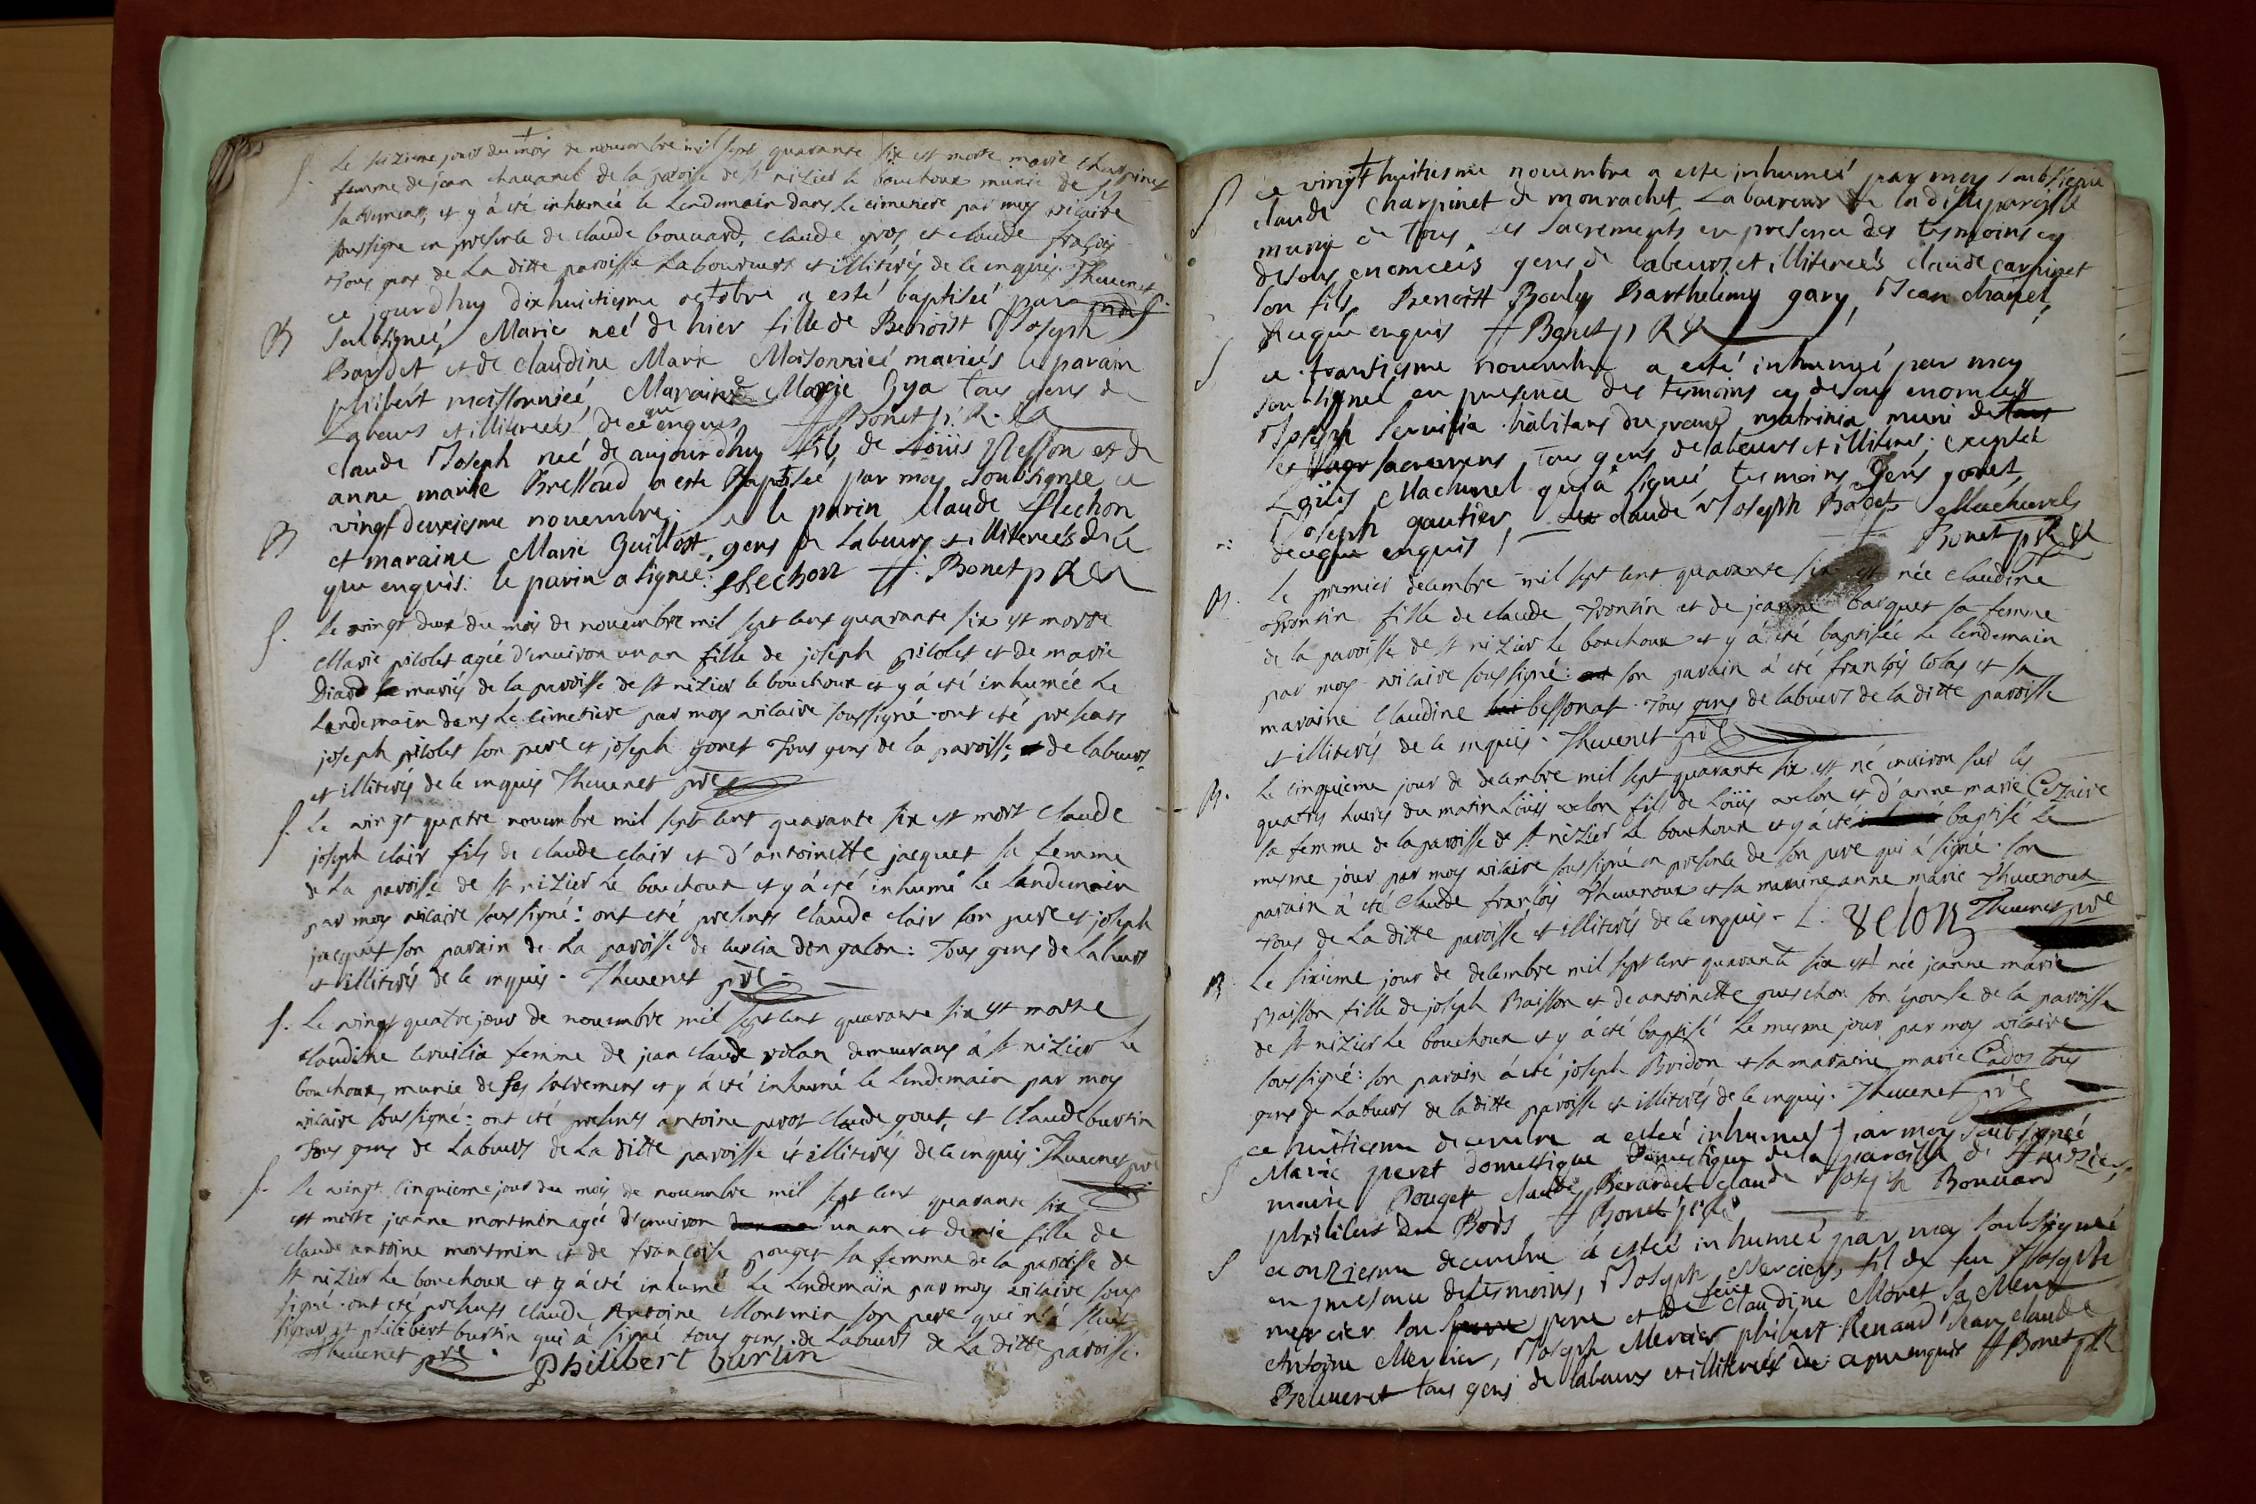 S. Le seizieme jour du mois de nouembre mil sept quarante six est morte marie charpinet
femme de jean chauanel de la paroisse de st nizier le bouchoux munie de ses
sacremens, et y à été inhumée le lendemain dans le cimetiere par moy vicaire
soussigné en presence de claude bouuard, claude gros et claude
tous gens de la ditte paroisse laboureurs et illiterés de ce enquis. Theuenet
ce jourdhuy dixhuitiesme octobre a esté baptiseé par
B soubsigneé, Marie neé de hier fille de Benoist Joseph
et de claudine Marie Moisonnieé marieés le parain
philibert moissonnieé, Maraine Marie Gya tous gens de
Labeurs et illitereés de ce que enquis ff Bonet p. R. &
claude Joseph neé de aujourdhuy fils de Loüis Flesson et de
anne marie Bressoud a este Baptiseé par moy soubsignee ce
B vingt deuxiesme nouembre. le parin claude flechon
et maraine Marie Guillost, gens de Labeurs et illitereés de ce
que enquis: le parin a signeé: flechon ff. Bonet p R &
S. Le vingt deux du mois de nouembre mil sept cent quarante six est morte
Marie pilolet agée d'enuiron un an fille de joseph pilolet et de marie
Diard mariés de la paroisse de st nizier le bouchoux et y à été inhumée le
landemain dans le cimetiere par moy vicaire soussigné ont été presents
joseph pilolet son pere et joseph gonet tous gens de la paroisse, de labeurs
et illiterés de ce enquis Theuenet pre
S. Le vingt quatre nouembre mil sept cent quarante six est mort claude
joseph clair fils de claude clair et d'antoinette jacquet sa femme
de la paroisse de st nizier le bouchoux et y à été inhumé le landemain
par moy vicaire soussigné: ont été presents claude clair son pere et joseph
jacquet son parain de la paroisse de curcia dongalon: tous gens de Labeurs
et illiterés de ce enquis. Theuenet pre
S. Le vingt quatre jour de nouembre mil sept cent quarante six est morte
claudine ceruilia femme de jean claude volan demeurans à st nizier le
bouchoux, munie de ses sacremens et y à été inhumé le lendemain par moy
vicaire soussigné: ont été presents antoine perot claude gout, et claude burtin
tous gens de labeurs de la ditte paroisse et illiterés de ce enquis. Theuenet pre
S. Le vingt cinquieme jour du mois de nouembre mil sept cent quarante six
est morte jeanne montmin agée d'enuiron un an et demie fille de
claude antoine montmin et de françoise pouget sa femme de la paroisse de
st nizier le bouchoux et y à été inhumé le lendemain par moy vicaire sous
signé. ont été presents claude Antoine Montmin son pere qui n'à sceu
signer et philibert burtin qui à signé tous gens de Labeurs de la ditte paroisse.
Theuenet pre. Philibert burtin
S ce vingt huitiesme nouembre a este inhumeé par moy soubsigné
claude charpinet de monrachet Laboureur de la ditte paroisse
muny de tous les sacrements en presence des tesmoins cy
desous enomceés gens de labeurs et illitereés claude carpinet
son fils, Benoitt Bouly Barthelemy gary, Jean chanel,
de ceque enquis ff Bonet p R &
S ce trantiesme nouembre a esté inhumeé par moy
soubsigneé en presence des tesmoins cy desous enomceés
Joseph seruilia habitans du grand matrinia muni de tous
les sacremens, tous gens de labeurs et illiteres, excepteé
Loüis Machurel qui a signeé tesmoins Denis gonet,
Joseph gautier, claude Joseph Badet Machurel
de ceque enquis / Bonet p R &
B. Le premier decembre mil sept cent quarante six est née claudine
trontin fille de claude trontin et de jeanne basquet sa femme
de la paroisse de st nizier le bouchoux et y à été baptisée le lendemain
par moy vicaire soussigné: son parain à été françois colas et sa
maraine claudine bessonat. tous gens de labeurs de la ditte paroisse
et illiterés de ce enquis. Theuenet pre
B. Le cinquieme jour de decembre mil sept quarante six est né enuiron sur les
quatres heures du matin Loüis velon fils de Loüis velon et d'anne marie Cezaire
sa femme de la paroisse de st nizier le bouchoux et y à été baptisé le
mesme jour par moy vicaire soussigné en presence de son pere qui à signé. son
parain à été claude françois Theuenoux et sa maraine anne marie Theuenoux
tous de la ditte paroisse et illiterés de ce enquis. L. velon Theuenet pre
B Le sixieme jour de decembre mil sept cent quarante six est née jeanne marie
Baisson fille de joseph Baisson et de antoinette guechon son épouse de la paroisse
de st nizier le bouchoux et y à été baptisé le mesme jour par moy vicaire
soussigné: son parain à été joseph Bridon et sa maraine marie Cados tous
gens de Labeurs de la ditte paroisse et illiterés de ce enquis. Theuenet pre
ce huitiesme decembre a esteé inhumeé par moy soubsigneé
S Marie peret domestique domestique de la paroisse de
Pouget claude Berardet claude Joseph Bouuard
philibert Du Bois ff Bonet p R
S ce onziesme decembre a esteé inhumeé par moy soubsigneé
en presence de tesmoins, Joseph Mercier, fil de feu Joseph
mercier son pere et de feue claudine Moret sa Mere
Antoine Mercier, Joseph Mercier philibert Renaud Jean claude
Beleuenet tous gens de labeurs et illitereés de ceque enquis ff Bonet p R